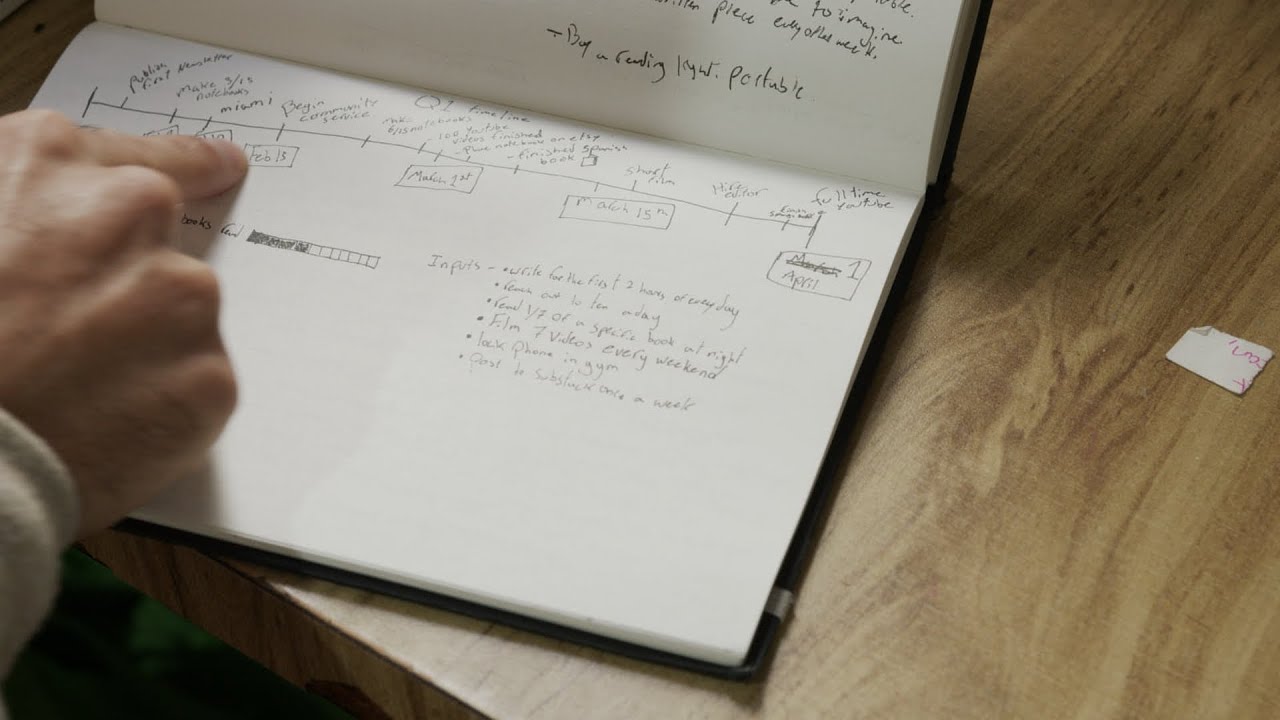 to imagine
piece every other week.
- Buy a reading light. portable
Q1 timeline
Publish
first Newsletter
make 3/15
notebooks
miami
Begin
community
service
make
6/15 notebooks
- 100 youtube
videos finished
notebook on etsy
- finished spanish
book
short
film
Hire
editor
full time
youtube
Feb 13
March 1st
March 15th
March 1
April
books read
Inputs - • write for the first 2 hours of every day
• reach out to ten a day
• read 1/7 of a specific book at night
• Film 7 videos every weekend
• lock phone in gym
• Post to substack once a week